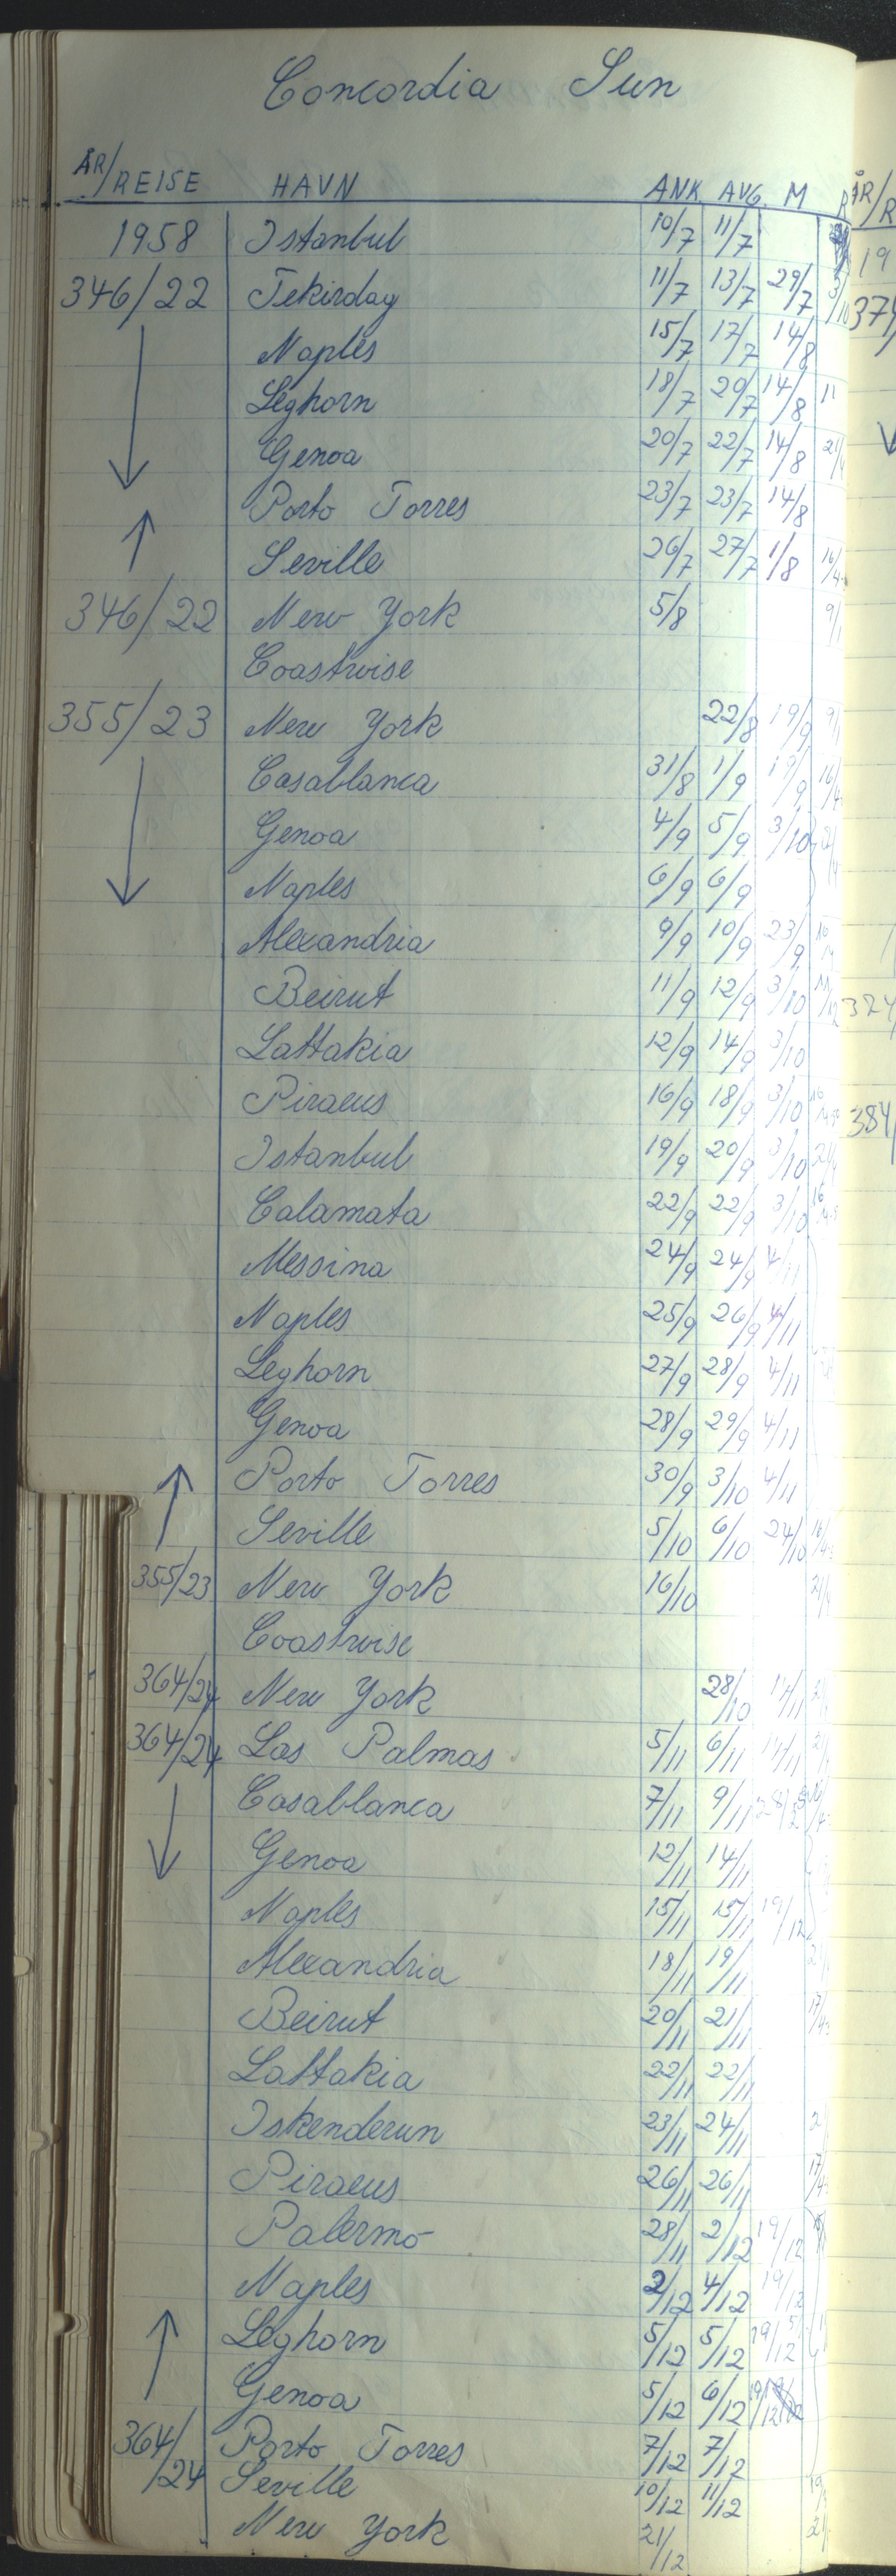 Concordia Sun
ÅR/REISE HAVN ANK AVG. M R
1958 Istanbul 10/7 11/7
346/22 Tekirdag 11/7 13/7 29/7 3/10
Naples 15/7 17/7 14/8
Leghorn 18/7 20/7 14/8 11
Genoa 20/7 22/7 14/8
Porto Torres 23/7 23/7 14/8
Seville 26/7 27/7 1/8
346/22 New York 5/8 9/1
Coastwise
355/23 New York 22/8 19/9 9/1
Casablanca 31/8 1/9 19/9
Genoa 4/9 5/9 3/10
Naples 6/9 6/9
Alexandria 9/9 10/9 23/9
Beirut 11/9 12/9 3/10
Lattakia 12/9 14/9 3/10
Piraeus 16/9 18/9 3/10
Istanbul 19/9 20/9 3/10
Calamata 22/9 22/9 3/10
Messina 24/9 24/9 4/11
Naples 25/9 26/9 4/11
Leghorn 27/9 28/9 4/11
Genoa 28/9 29/9 4/11
Porto Torres 30/9 3/10 4/11
Seville 5/10 6/10 24/10
355/23 New York 16/10
Coastwise
364/24 New York 28/10 14/11
364/24 Las Palmas 5/11 6/11 14/11
Casablanca 7/11 9/11
Genoa 12/11 14/11
Naples 15/11 15/11 19/12
Alexandria 18/11 19/11
Beirut 20/11 21/11
Lattakia 22/11 22/11
Iskenderun 23/11 24/11
Piraeus 26/11 26/11
Palermo 28/11 2/12 19/12
Naples 2/12 4/12 19/12
Leghorn 5/12 5/12 19/12
Genoa 5/12 6/12 19/12
364/24 Porto Torres 7/12 7/12
Seville 10/12 11/12
New York 21/12